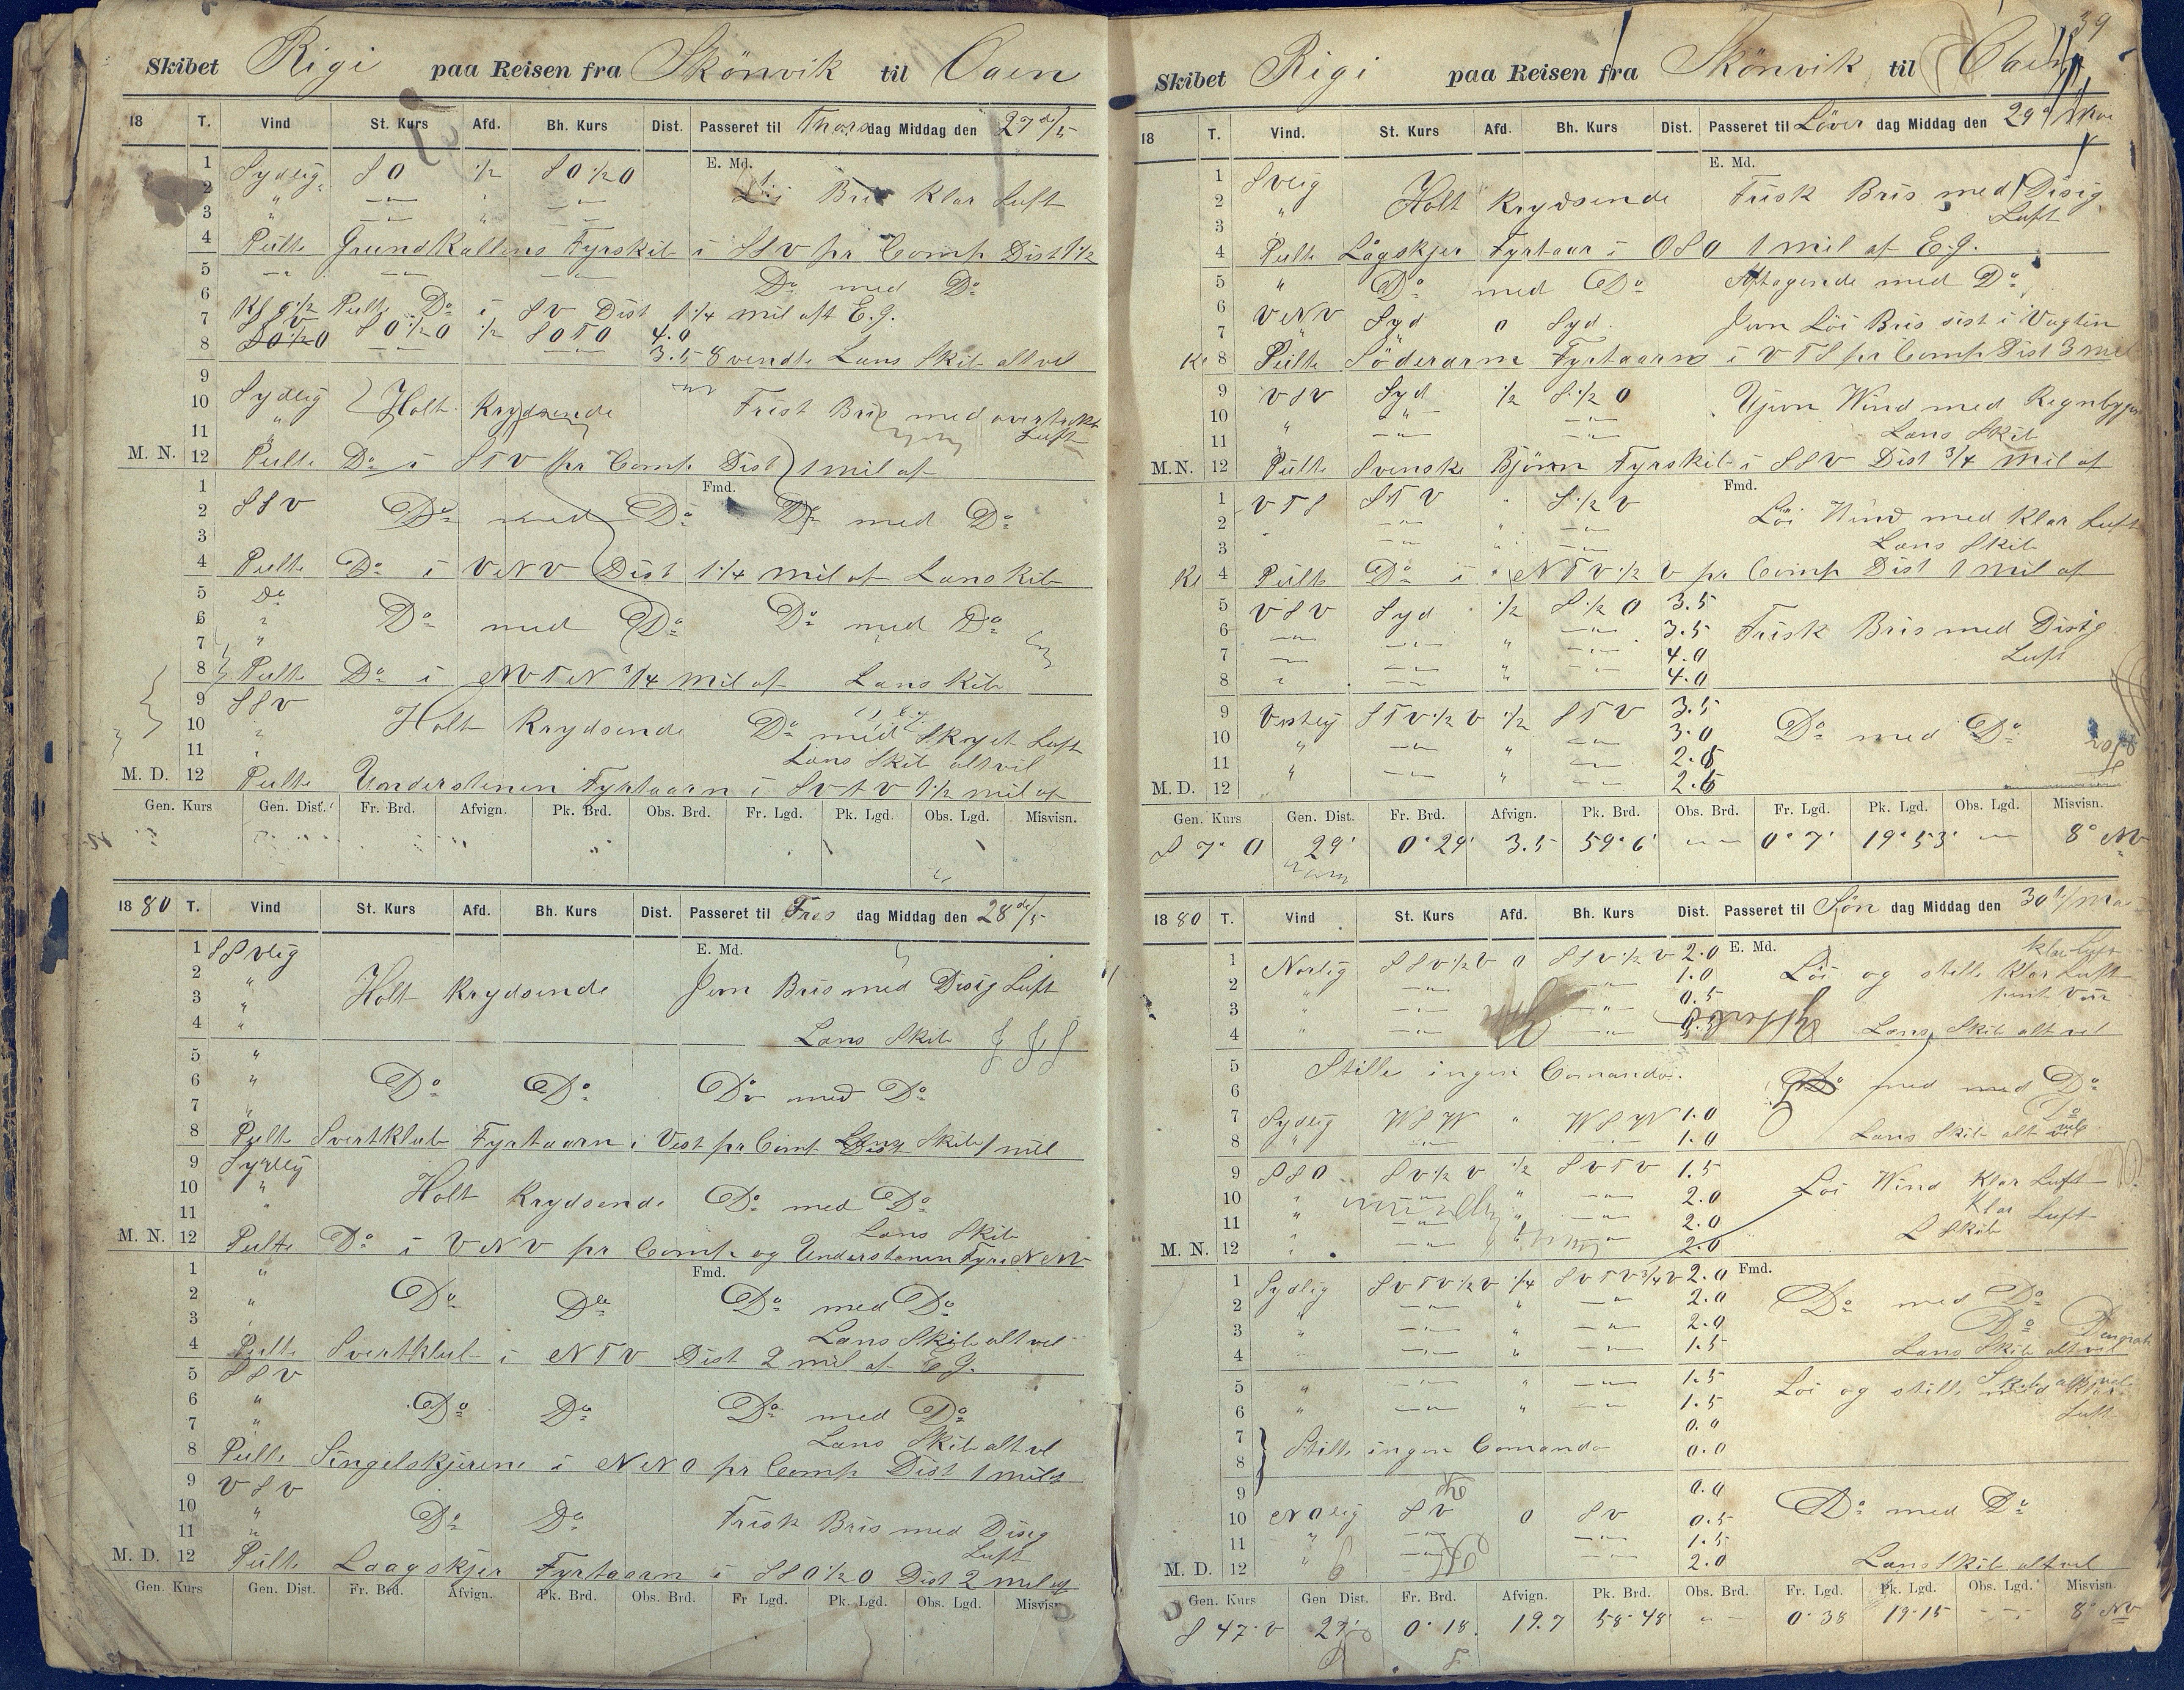 Skibet Rigi paa Reisen fra Skönvik til Caen
18 T. Vind St. Kurs Afd. Bh. Kurs Dist. Passeret til Thorsdag Middag den 27de/5
1 Sydlig SO 1/2 SO 1/2 O E. Md.
2 " -"- " -"- Löi Bris klar Luft
3 " -"- " -"-
4 Peilte Grundkallens Fyrskib i SSV pr Comp Dist 1 1/2
5 -"- -"- -"- Do med Do
6 Kl 6 1/2 Peilte Do i SV Dist 1 1/4 mil aft E.G.
7 SV SO 1/2 O 1/2 SOTO 4.0
8 SO 1/2 O -"- -"- 3.5 8 vendte Lans Skib alt vel
9 Sydlig
10 Holt Krydsende Frisk Bris med overtrekt
11 " Luft
M. N. 12 Peilte Do i STV pr Comp Dist 1 mil af
1 Fmd.
2 SSV Do med Do Do med Do
3
4 Peilte Do i VNV Dist 1 1/4 mil af Lans kib
5 Do
6 " Do med Do Do med Do
7 "
8 Peilte Do i NVTN 3/4 mil af Lans kib
9 SSV
10 " Holt Krydsende Do med Skyet Luft
11 " Lans Skib alt vel
M. D. 12 Peilte Understenen Fyrtaarn i SVTV 1 1/2 mil af
Gen. Kurs Gen. Dist. Fr. Brd. Afvign. Pk. Brd. Obs. Brd. Fr. Lgd. Pk. Lgd. Obs. Lgd. Misvisn.
1880 T. Vind St. Kurs Afd. Bh. Kurs Dist. Passeret til Fredag Middag den 28de/5
1 SSVlig E. Md.
2 "
3 " Holt Krydsende Jevn Bris med Disig Luft
4 " Lans Skib
5 "
6 " Do Do Do med Do
7 "
8 Peilte Svertklub Fyrtaarn i Vest pr Comp Dist Lans Skib 1 mil
9 Sydlig
10 " Holt Krydsende Do med Do
11 " Lans Skib
M. N. 12 Peilte Do i VNV pr Comp og Understenen Fyr i NNV
1 " Fmd.
2 " Do Do Do med Do
3 " Lans Skib alt vel
4 Peilte Svertklub i NTV Dist 2 mil af E.G.
5 SSV
6 " Do Do Do med Do
7 " Lans Skib alt vel
8 Peilte Singelskjerene i NNO pr Comp Dist 1 mil af
9 VSV
10 " Do Do Frisk Bris med Disig
11 " Luft
M. D. 12 Peilte Laagskjer Fyrtaarn i SSO 1/2 O Dist 2 mil af
Gen. Kurs Gen. Dist. Fr. Brd. Afvign. Pk. Brd. Obs. Brd. Fr Lgd. Pk. Lgd. Obs. Lgd. Misvisn
39
Skibet Rigi paa Reisen fra Skönvik til Caen
18 T. Vind. St. Kurs Afd. Bh. Kurs Dist. Passeret til Löverdag Middag den 29de/Mai
1 SVlig E. Md.
2 " Holt Krydsende Frisk Bris med Disig
3 Luft
4 Peilte Lågskjer Fyrtaar i OSO 1 mil af E.G.
5 " Do med Do Aftagende med Do
6 VNV Syd 0 Syd.
7 " Jevn Löi Bris sist i Vagten
Kl 8 Peilte Söderarm Fyrtaarn i VTS pr Comp Dist 3 mil
9 VSV Syd 1/2 S 1/2 O Ujevn Wind med Regnbyger
10 " -"- -"-
11 " -"- -"- Lans Skib
M.N. 12 Peilte Svenske Björn Fyrskib i SSV Dist 3/4 mil af
1 VTS STV " S 1/2 V Fmd.
2 -"- " -"- Löi Wind med klar Luft
3 -"- " -"- Lans Skib
Kl 4 Peilte Do i NTV 1/2 V pr Comp Dist 1 mil af
5 VSV Syd 1/2 S 1/2 O 3.5
6 -"- -"- -"- 3.5 Frisk Bris med Disig
7 -"- -"- " -"- 4.0 Luft
8 " -"- " -"- 4.0
9 Vestlig STV 1/2 V 1/2 STV 3.5
10 " -"- " -"- 3.0 Do med Do
11 " -"- " -"- 2.5
M. D. 12 " -"- " -"- 2.5
Gen. Kurs Gen. Dist. Fr. Brd. Afvign. Pk. Brd. Obs. Brd. Fr. Lgd. Pk. Lgd. Obs. Lgd. Misvisn.
S 7° O 29' 0°29' 3.5 59°6' -"- 0°7' 19°53' -"- 8° NV
1880 T. Vind St. Kurs Afd. Bh. Kurs Dist. Passeret til Söndag Middag den 30te/Mai
1 Norlig SSV 1/2 V 0 SSV 1/2 V 2.0 E. Md. klar Luft
2 " -"- -"- 1.0 Löi og stille klar Luft
3 " -"- " -"- 0.5
4 " -"- -"- Lans Skib alt vel
5 Stille ingen Comando.
6 Do med med Do
7 Sydlig WSW " WSW 1.0 Do
8 " -"- -"- 1.0 Lans Skib alt vel
9 SSO SV 1/2 V 1/2 SVTV 1.5
10 " -"- " -"- 2.0 Löi Wind klar Luft
11 " -"- " -"- 2.0 Klar Luft
M. N. 12 " -"- -"- 2.0 L Skib
1 Sydlig SVTV 1/2 V 1/4 SVTV 3/4 V 2.0 Fmd.
2 " -"- " -"- 2.0 Do med Do
3 " -"- " -"- 2.0 Do
4 -"- " -"- 1.5 Lans Skib alt vel
5 " -"- " -"- 1.5 Löi og stille med klar
6 " -"- " -"- 1.5 Luft
7 0.0
8 Stille ingen Comando 0.0
9 0.0
10 NOlig SV 0 SV 0.5 Do med Do
11 " -"- -"- 1.5
M. D. 12 " -"- -"- 2.0 Lans Skib alt vel
Gen. Kurs Gen Dist. Fr. Brd. Afvign. Pk. Brd. Obs. Brd. Fr. Lgd. Pk. Lgd. Obs. Lgd. Misvisn.
S 47° V 27' 0°18' 19.7 58°48' " - 0°38 19°15 -"- 8° NV